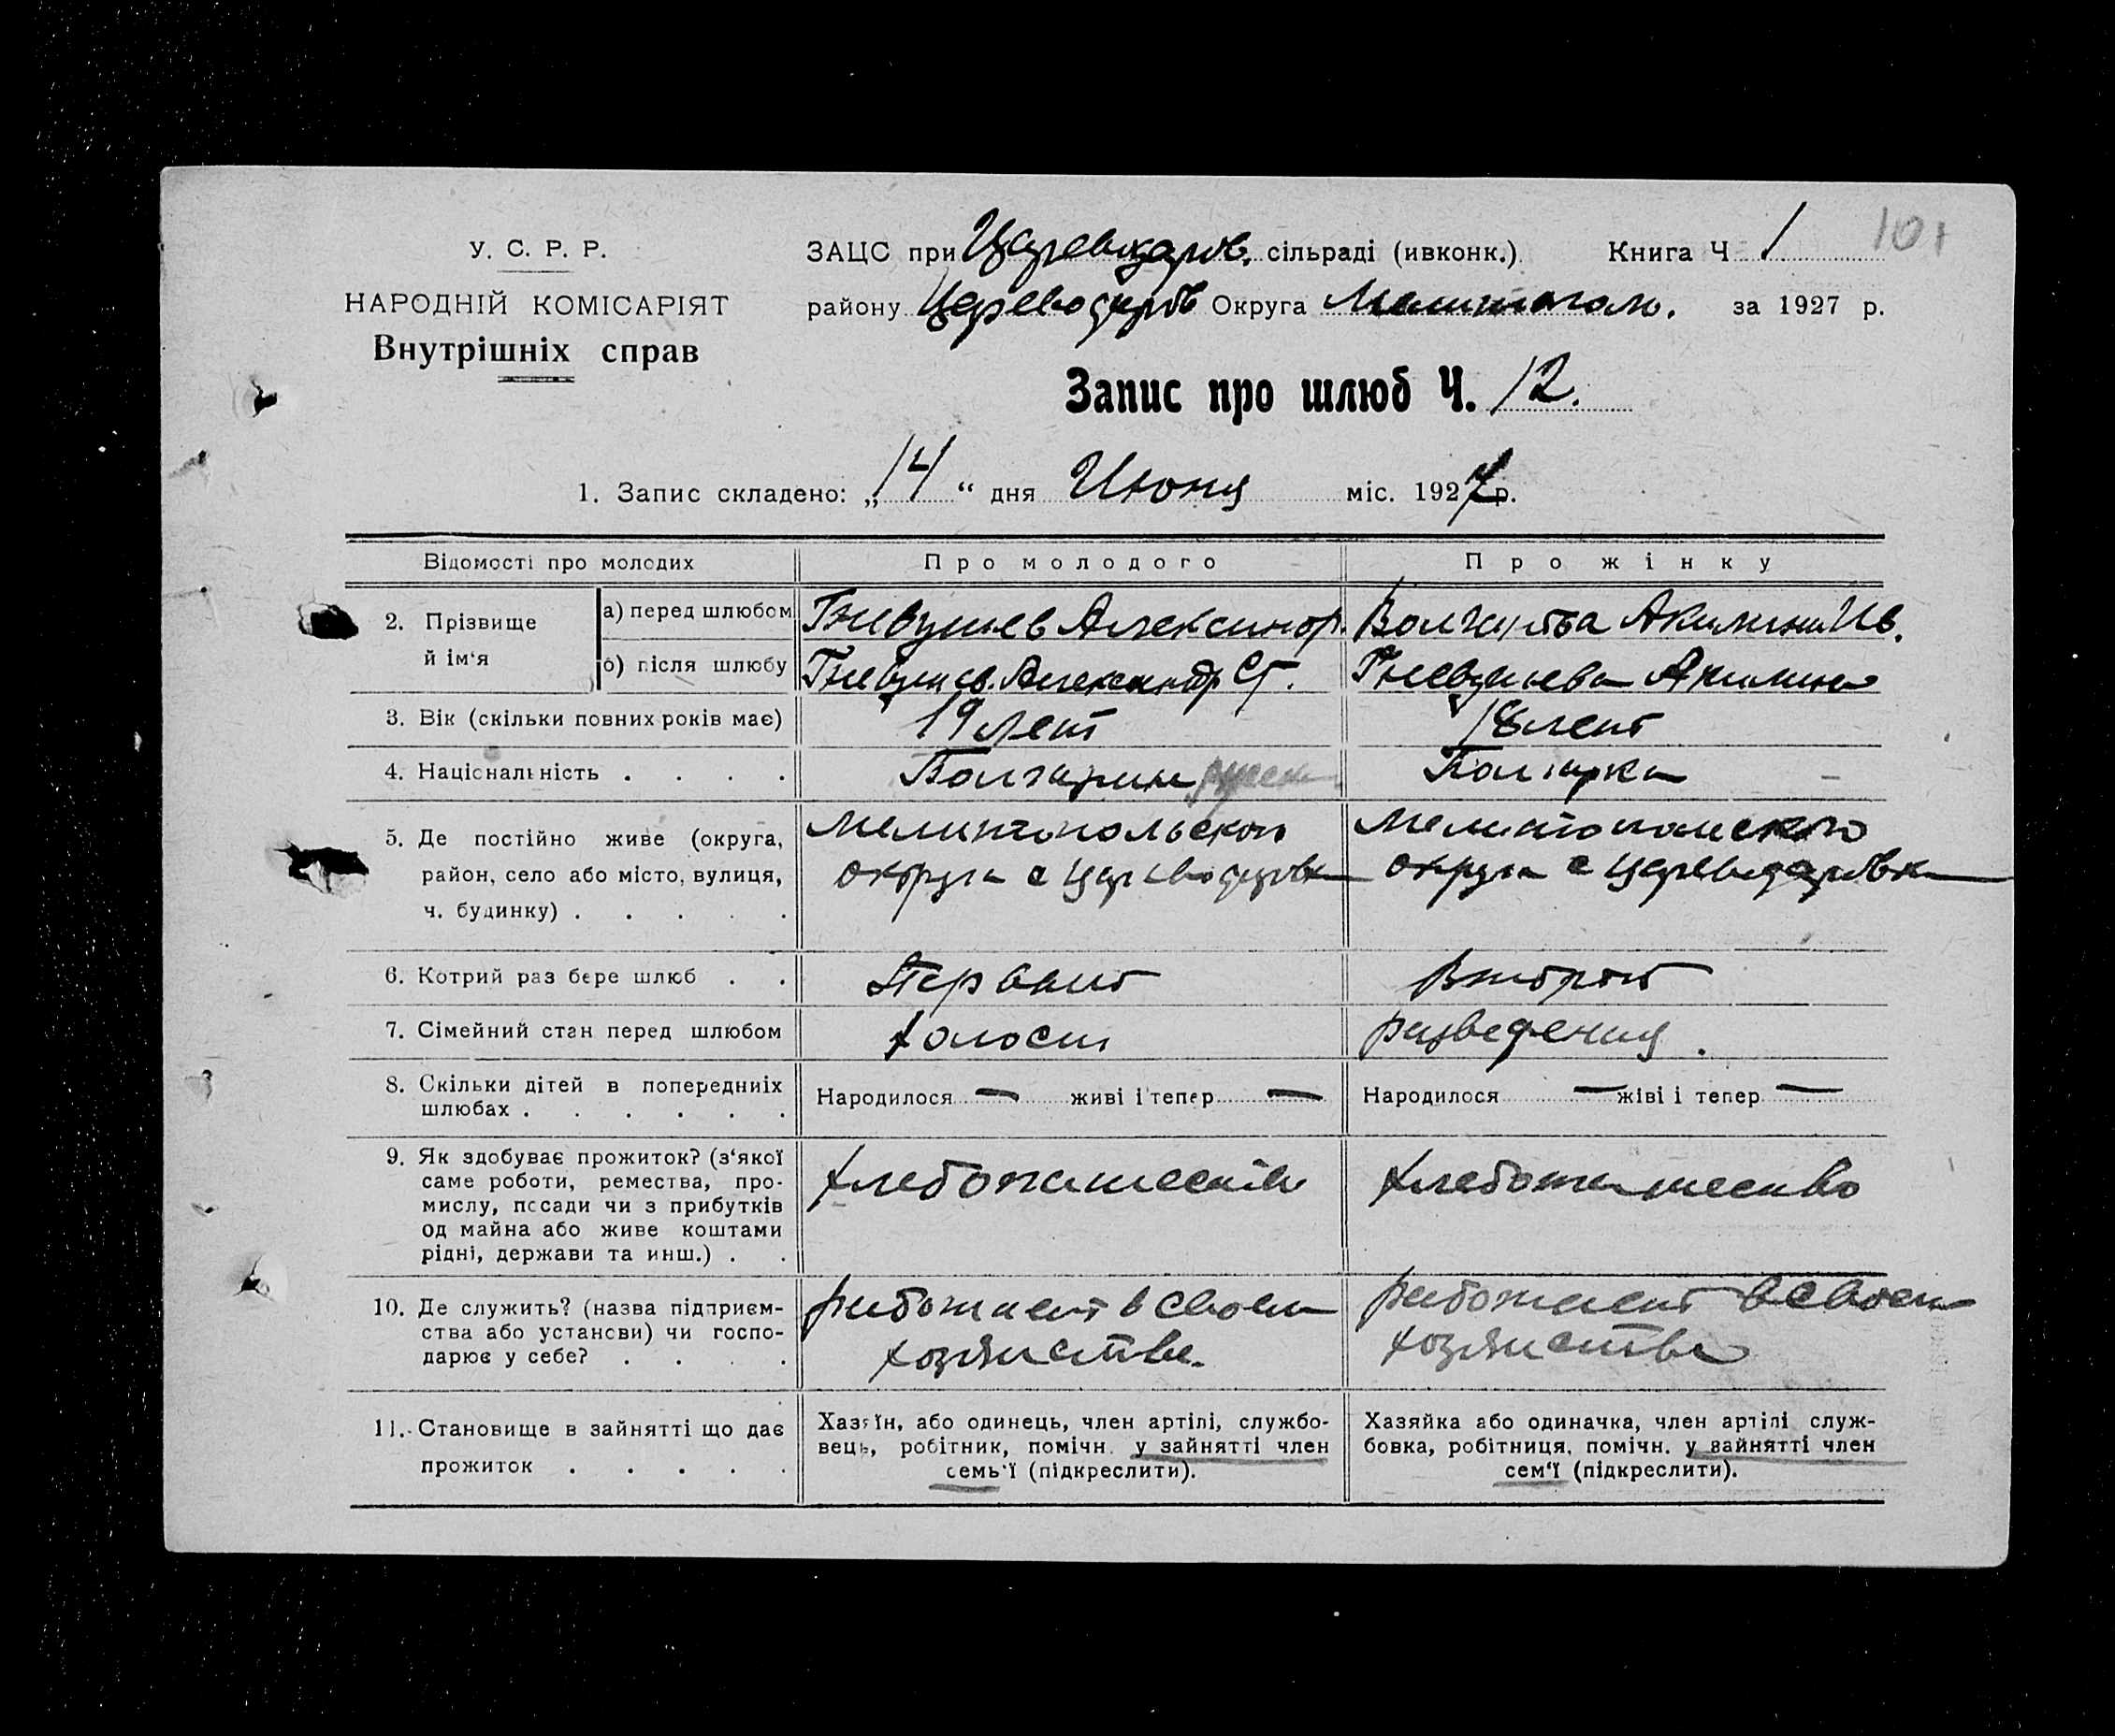 У. С. Р. Р.
НАРОДНІЙ КОМІСАРІЯТ
Внутрішніх справ
ЗАЦС при Цареводаров. сільраді (ивконк.) Книга Ч 1 101
району Цареводаров Округа Мелитополь. за 1927 р.
Запис про шлюб Ч. 12.
1. Запис складено: „14“ дня Июня міс. 1927 р.
Відомості про молодих Про молодого Про жінку
2. Прізвище й ім‘я
а) перед шлюбом Гневушев Александр. Акилина Ив.
б) після шлюбу Гневушев. Александр Ст. Гневушева Акилина
3. Вік (скільки повних років має) 19 лет 18 лет
4. Національність . . . . Болгарин Болгарка
5. Де постійно живе (округа, район, село або місто, вулиця, ч. будинку) . . . . .
Мелитопольского
округа с Цареводаровка
Мелитопольского
округа с Цареводаровка
6. Котрий раз бере шлюб . . Первый Второй
7. Сімейний стан перед шлюбом Холост разведеная.
8. Скільки дітей в попередниіх шлюбах . . . . . .
Народилося — живі і тепер —
Народилося — жіві і тепер —
9. Як здобуває прожиток? (з‘якої
саме роботи, ремества, про-
мислу, посади чи з прибутків
од майна або живе коштами
рідні, держави та инш.) . .
Хлебопашество
Хлебопашество
10. Де служить? (назва підприєм-
ства або установи) чи госпо-
дарює у себе? . . . .
работает в своем
хозяйстве.
работает в своем
хозяйстве
11. Становище в зайнятті що дає
прожиток . . . . .
Хазяїн, або одинець, член артілі, службо-
вець, робітник, помічн. у зайнятті член
семь‘ї (підкреслити).
Хазяйка або одиначка, член артілі служ-
бовка, робітниця, помічн. у зайнятті член
сем‘ї (підкреслити).